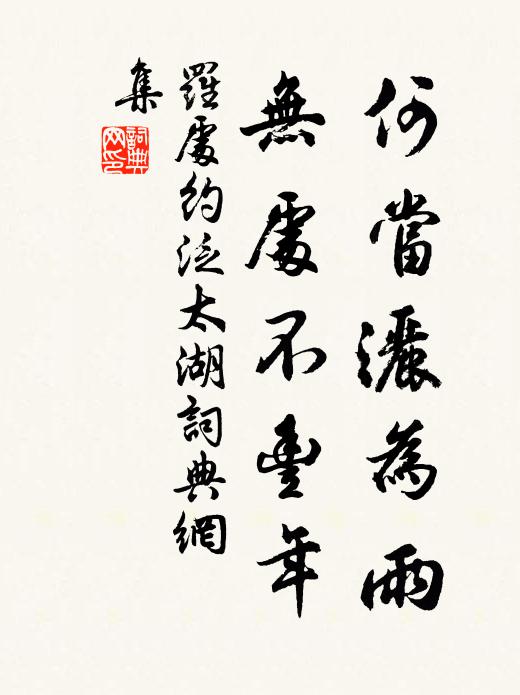 何當灑為雨
無處不豐年
羅處約泛太湖詞典網
集
詞典
网印